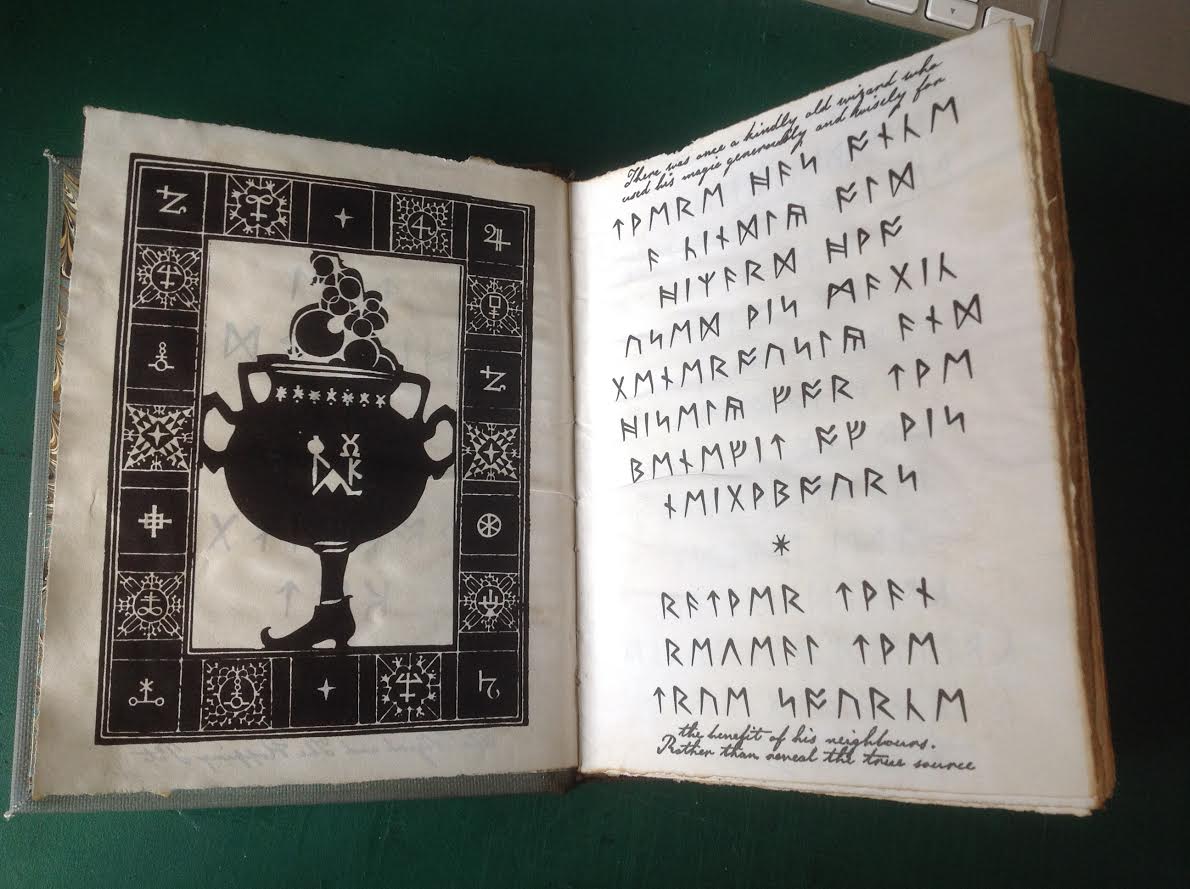 There was once a kindly old wizard who
used his magic generously and wisely for
ᛏᚦᛖᚱᛖ ᚻᚨᛋ ᚩᚾᚳᛖ
ᚨ ᚳᛁᚾᛞᛚᚣ ᚩᛚᛞ
ᚻᛁᛉᚨᚱᛞ ᚻᚦᚩ
ᚢᛋᛖᛞ ᚦᛁᛋ ᛗᚨᚷᛁᚳ
ᚷᛖᚾᛖᚱᚩᚢᛋᛚᚣ ᚨᚾᛞ
ᚻᛁᛋᛖᛚᚣ ᚠᚩᚱ ᛏᚦᛖ
ᛒᛖᚾᛖᚠᛁᛏ ᚩᚠ ᚦᛁᛋ
ᚾᛖᛁᚷᚦᛒᚩᚢᚱᛋ
*
ᚱᚨᛏᚦᛖᚱ ᛏᚦᚨᚾ
ᚱᛖᚢᛖᚨᛚ ᛏᚦᛖ
ᛏᚱᚢᛖ ᛋᚩᚢᚱᚳᛖ
the benefit of his neighbours.
Rather than reveal the true source